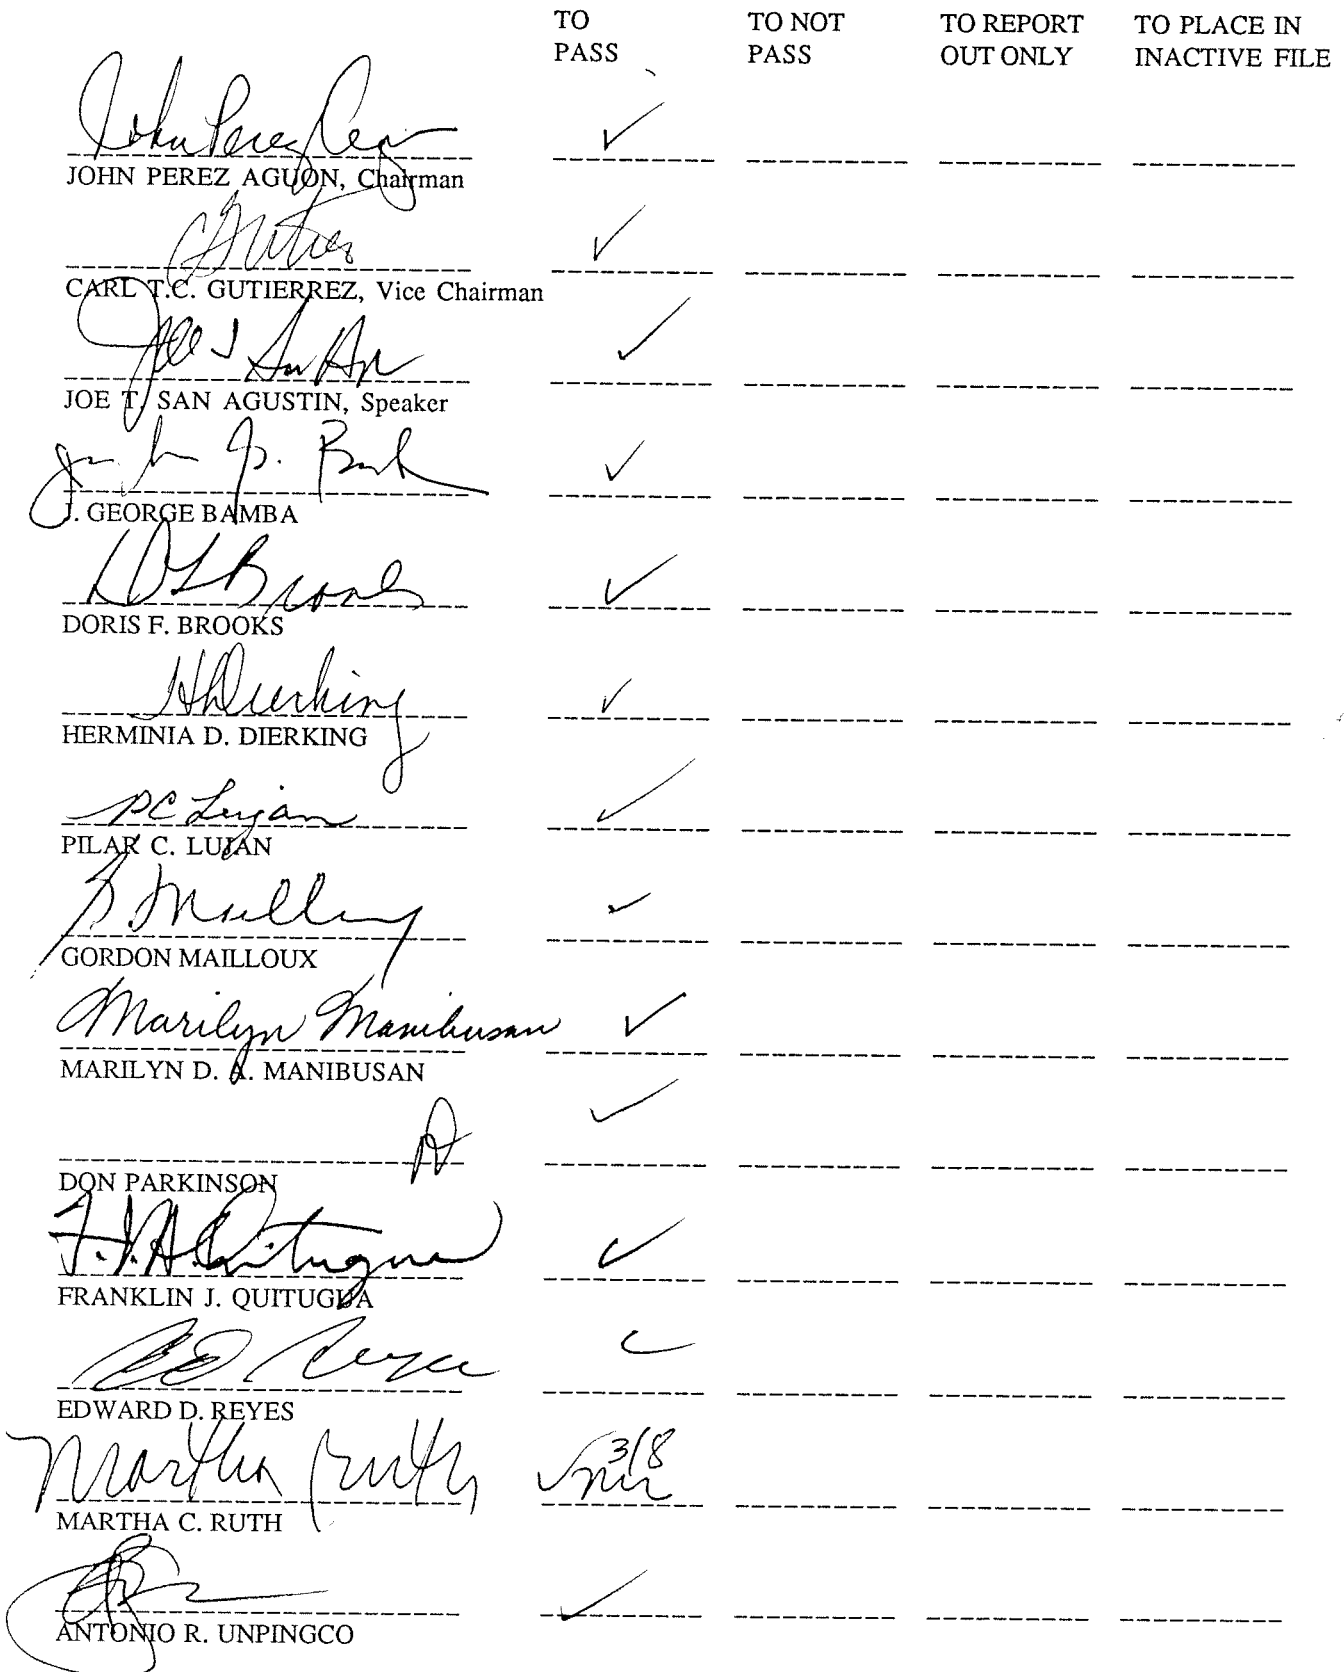 TO PASS TO NOT PASS TO REPORT OUT ONLY TO PLACE IN INACTIVE FILE
John Perez Aguon ✓
JOHN PEREZ AGUON, Chairman
✓
CARL T.C. GUTIERREZ, Vice Chairman
✓
JOE T. SAN AGUSTIN, Speaker
✓
J. GEORGE BAMBA
Brooks ✓
DORIS F. BROOKS
HDierking ✓
HERMINIA D. DIERKING
PC Lujan ✓
PILAR C. LUJAN
✓
GORDON MAILLOUX
Marilyn Manibusan ✓
MARILYN D. A. MANIBUSAN
✓
DON PARKINSON
F.J.A. Quitugua ✓
FRANKLIN J. QUITUGUA
ED Reyes ✓
EDWARD D. REYES
Martha Cruth ✓ 3/8
MARTHA C. RUTH
✓
ANTONIO R. UNPINGCO